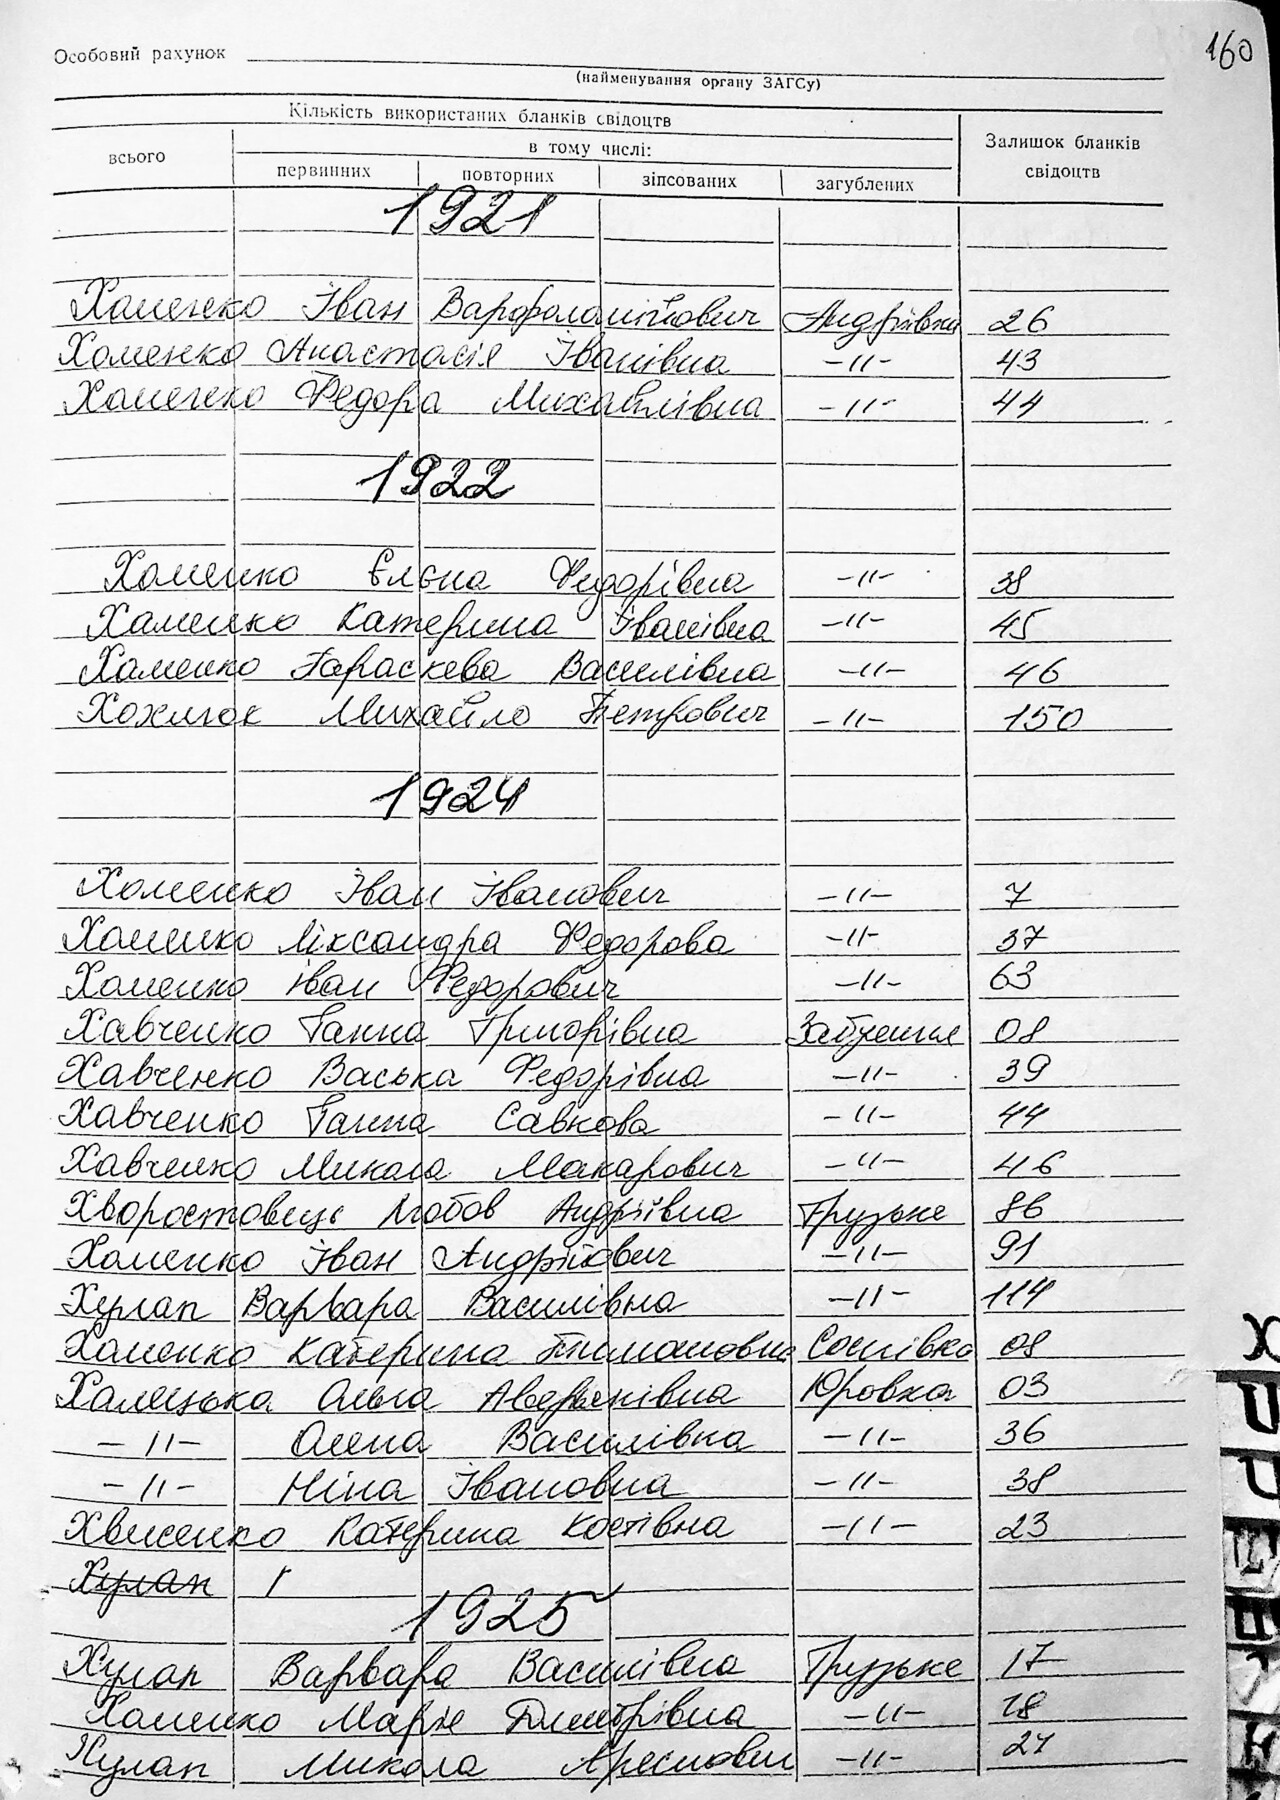 160
Особовий рахунок
(найменування органу ЗАГСу)
Кількість використаних бланків свідоцтв
Залишок бланків свідоцтв
всього
в тому числі:
первинних повторних зіпсованих загублених
1921
Хоменко Іван Варфоломійович Андріївка 26
Хоменко Анастасія Іванівна -//- 43
Хоменко Федора Михайлівна -//- 44
1922
Хоменко Єлєна Федорівна -//- 38
Хоменко Катерина Іванівна -//- 45
Хоменко Параскева Василівна -//- 46
Хохлюк Михайло Петрович -//- 150
1924
Хоменко Іван Іванович -//- 7
Хоменко Ліксандра Федорова -//- 37
Хоменко Іван Федорович -//- 63
Хавченко Ганна Григорівна Забуяння 08
Хавченко Васька Федорівна -//- 39
Хавченко Ганна Савкова -//- 44
Хавченко Микола Макарович -//- 46
Хворостовець Любов Андріївна Грузьке 86
Хоменко Іван Андрійович -//- 91
Хулап Варвара Василівна -//- 114
Хоменко Катерина 08
Халецька Ольга Авер'янівна Юровка 03
-//- Олена Василівна -//- 36
-//- Ніна Івановна -//- 38
Катерина Костівна -//- 23
Хулап
1925
Хулап Варвара Василівна Грузьке 17
Хоменко Марія Дмитрівна -//- 18
Хулап Микола -//-